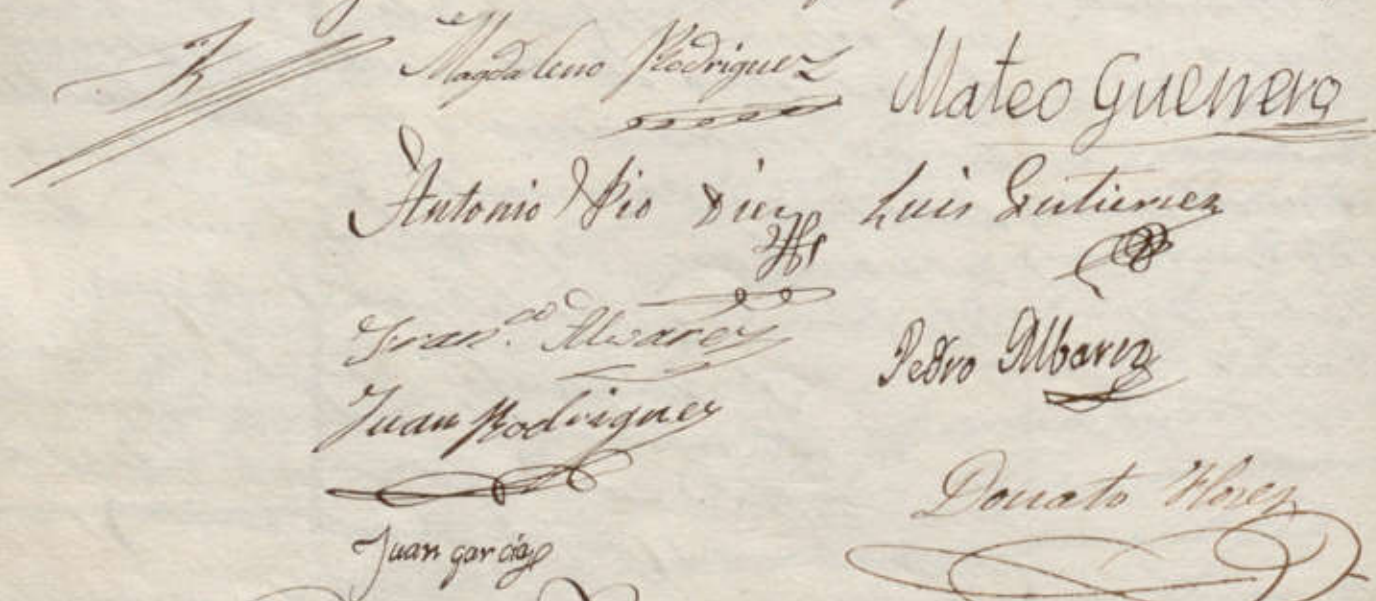 Magdaleno Rodriguez
Mateo Guerrero
Antonio Pio Diez
Luis Gutierrez
Fran.co Alvarez
Pedro Albarez
Juan Rodriguez
Donato Florez
Juan garcia